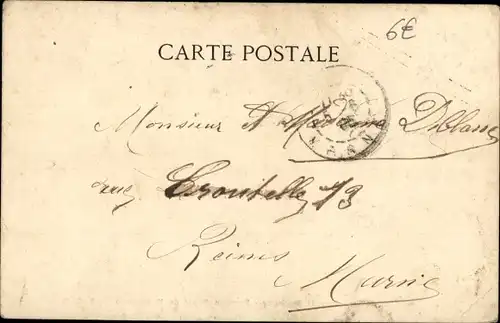 6€
CARTE POSTALE
Monsieur et Madame
rue Croutelle 13
Reims
Marne